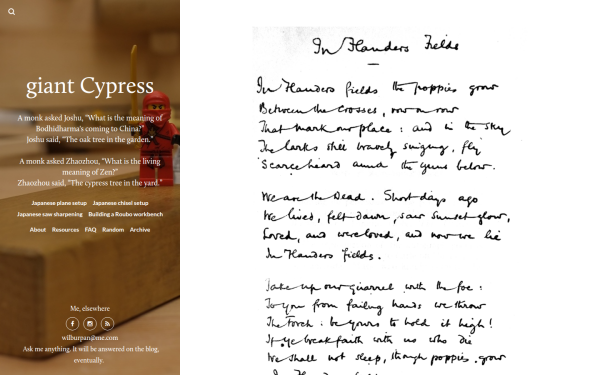 giant Cypress
A monk asked Joshu, "What is the meaning of
Bodhidharma's coming to China?"
Joshu said, "The oak tree in the garden."
A monk asked Zhaozhou, "What is the living
meaning of Zen?"
Zhaozhou said, "The cypress tree in the yard."
Japanese plane setup Japanese chisel setup
Japanese saw sharpening Building a Roubo workbench
About Resources FAQ Random Archive
Me, elsewhere
wilburpan@me.com
Ask me anything. It will be answered on the blog,
eventually.
In Flanders Fields
In Flanders fields the poppies grow
Between the crosses, row on row
That mark our place: and in the sky
The larks still bravely singing, fly
Scarce heard amid the guns below.
We are the Dead. Short days ago
We lived, felt dawn, saw sunset glow,
Loved, and were loved, and now we lie
In Flanders fields.
Take up our quarrel with the foe:
To you from failing hands we throw
The Torch: be yours to hold it high!
If ye break faith with us who die
We shall not sleep, though poppies grow
In Flanders fields